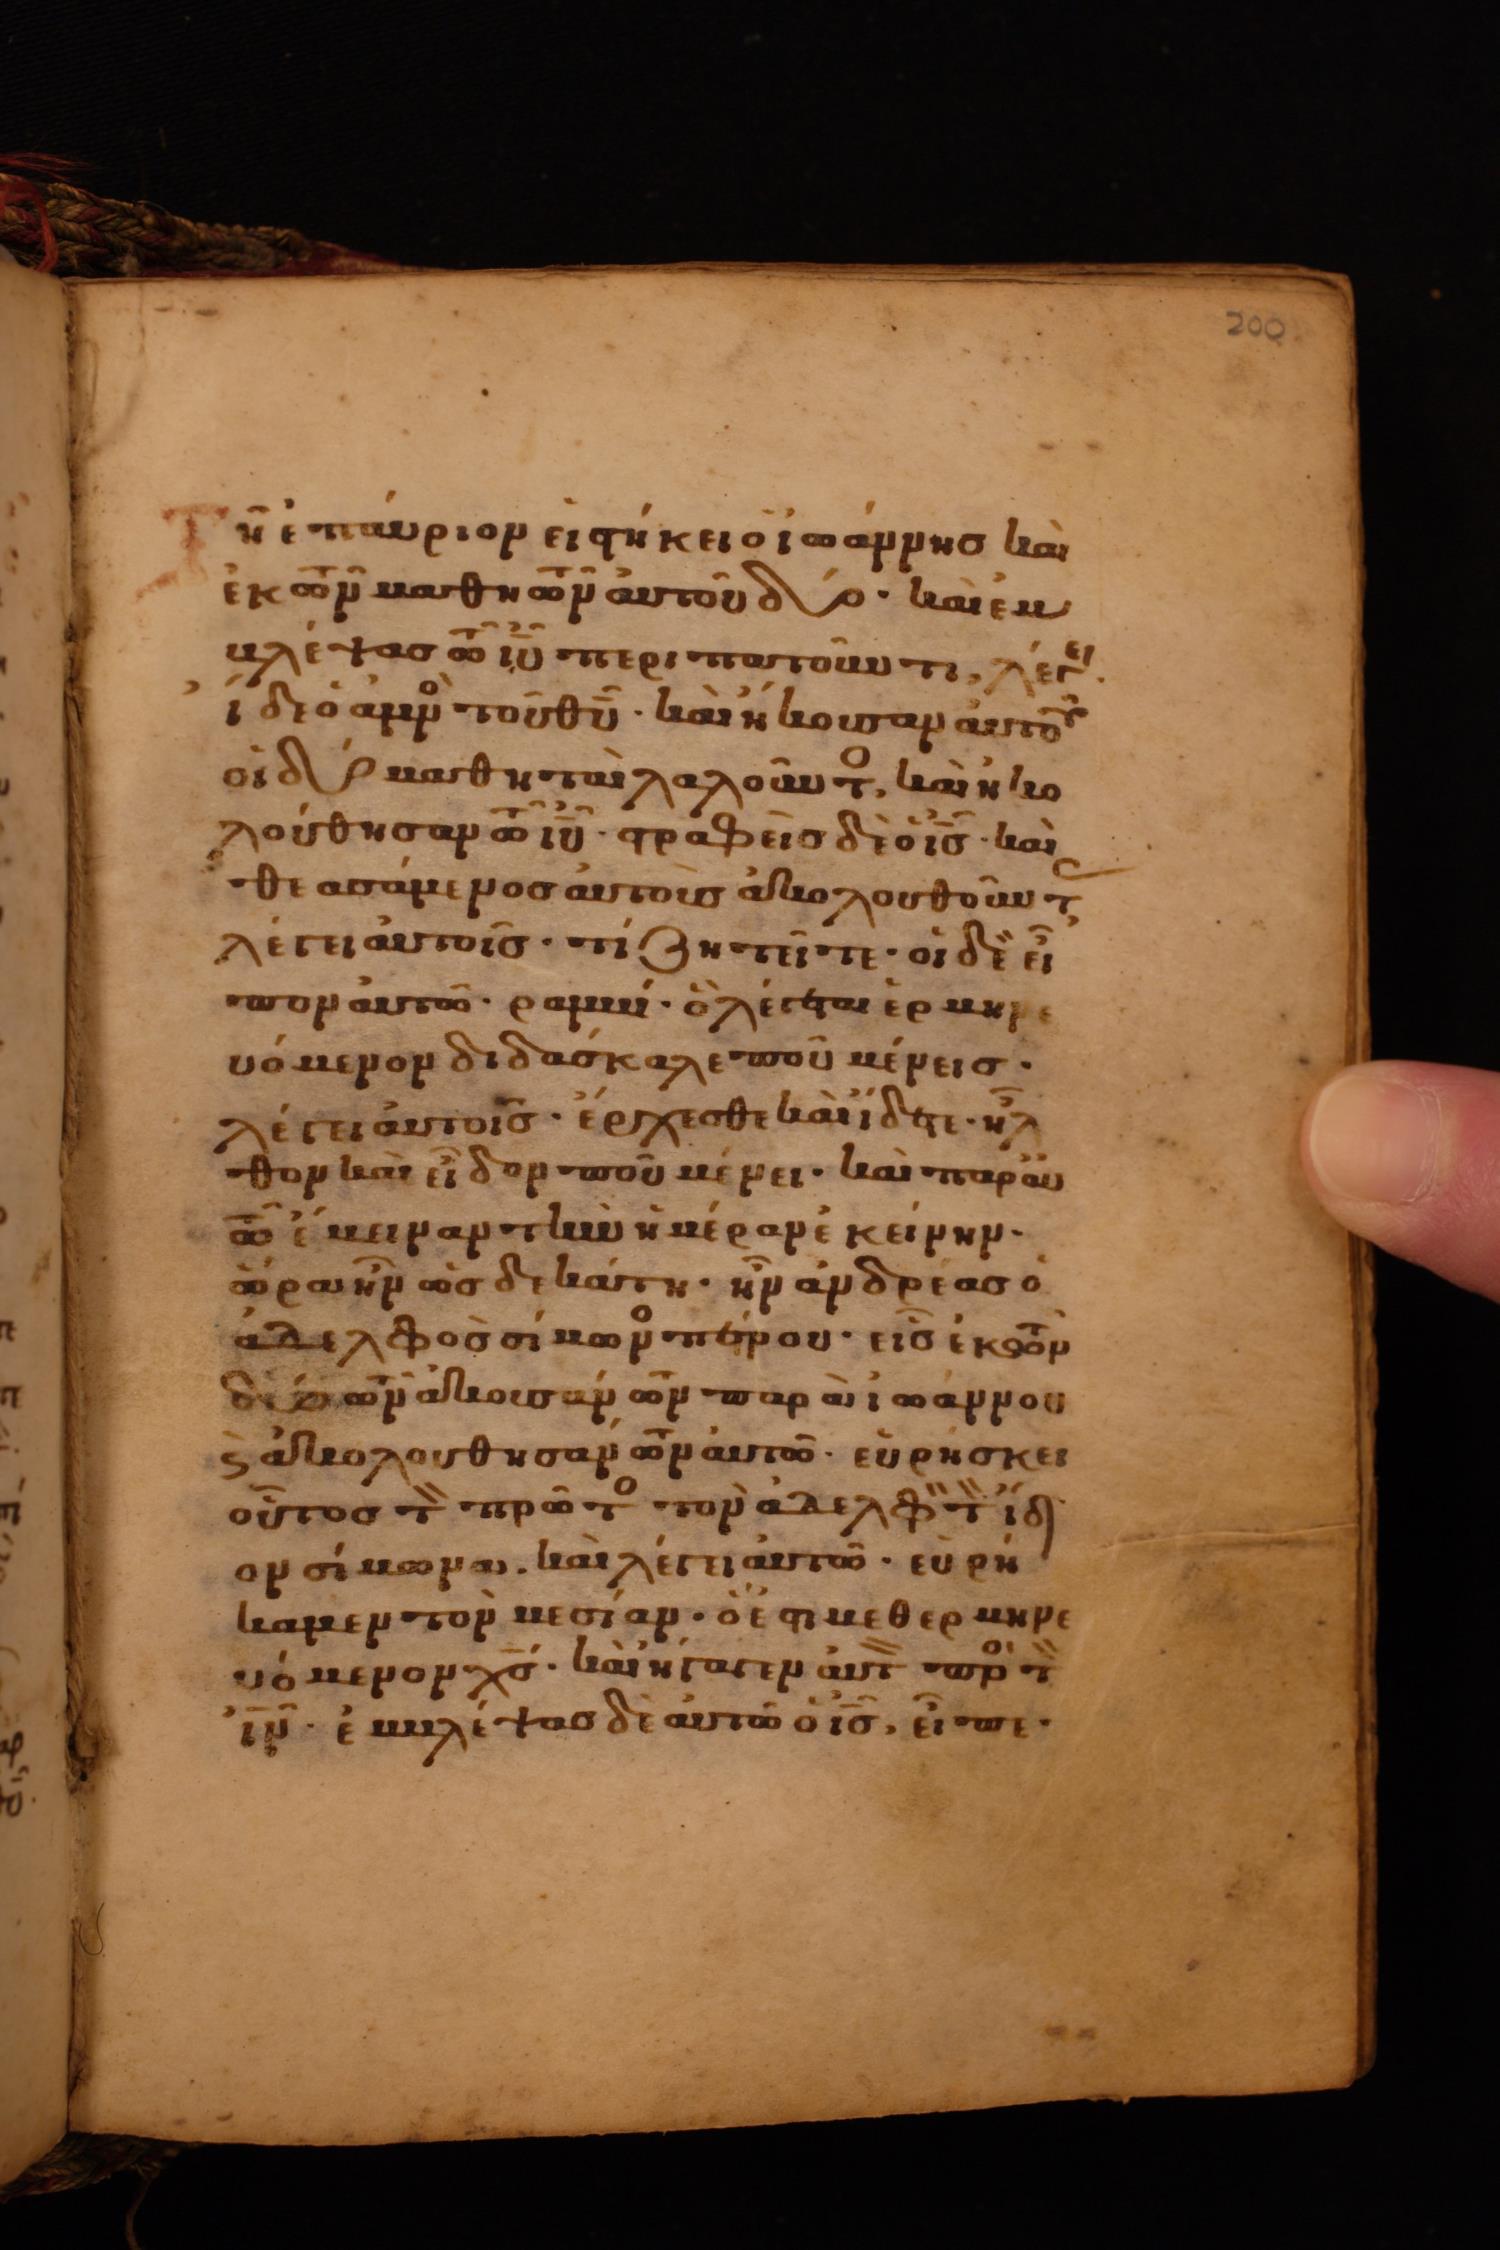 200
Τῆ ἐπαύριον εἱστήκει ὁ ἰωάννησ καὶ
ἐκ τῶν μαθητῶν ἀυτοῦ δύο· καὶ ἐμ
βλέψασ τῶ ἰῦ περιπατοῦντι, λέγει·
ἴδε ὁ ἀμνὸ τοῦ θῦ· καὶ ἤκουσαν ἀυτοῦ
οἱ δύο μαθηταὶ λαλοῦντο, καὶ ἠκο
λούθησαν τῶ ἰῦ· στραφεὶσ δὲ ὁ ἰσ· καὶ
θεασάμενοσ ἀυτοὺσ ἀκολουθοῦντ
λέγει ἀυτοῖσ· τί ζητεῖτε· οἱ δὲ εἶ
πον ἀυτῶ· ραββί· ὃ λέγεται ἑρμηνε
υόμενον διδάσκαλε ποῦ μένεισ·
λέγει ἀυτοῖσ· ἔρχεσθε καὶ ἴδετε· ἦλ
θον καὶ εἶδον ποῦ μένει· καὶ παρ ἀυ
τῶ ἔμειναν τὴν ἡμέραν ἐκείνην·
ὥρα ἦν ὡσ δεκάτη· ἦν ἀνδρέασ ὁ
ἀδελφὸσ σίμωνο πέτρου· εἷσ ἐκ τῶν
δύο τῶν ἀκουσάντων παρὰ ἰωάννου
ϛ ἀκολουθησάντων ἀυτῶ· εὑρήσκει
οὗτοσ τ πρῶτο τὸν ἀδελφ τ ἴδι
ον σίμωνα. καὶ λέγει ἀυτῶ· εὑρή
καμεν τὸν μεσίαν· ὅ ἐστι μεθερμηνε
υόμενον χσ· καὶ ἤγαγεν ἀυτ πρὸ τ
ἰν· ἐμβλέψασ δὲ ἀυτῶ ὁ ἰσ, εἶπε·